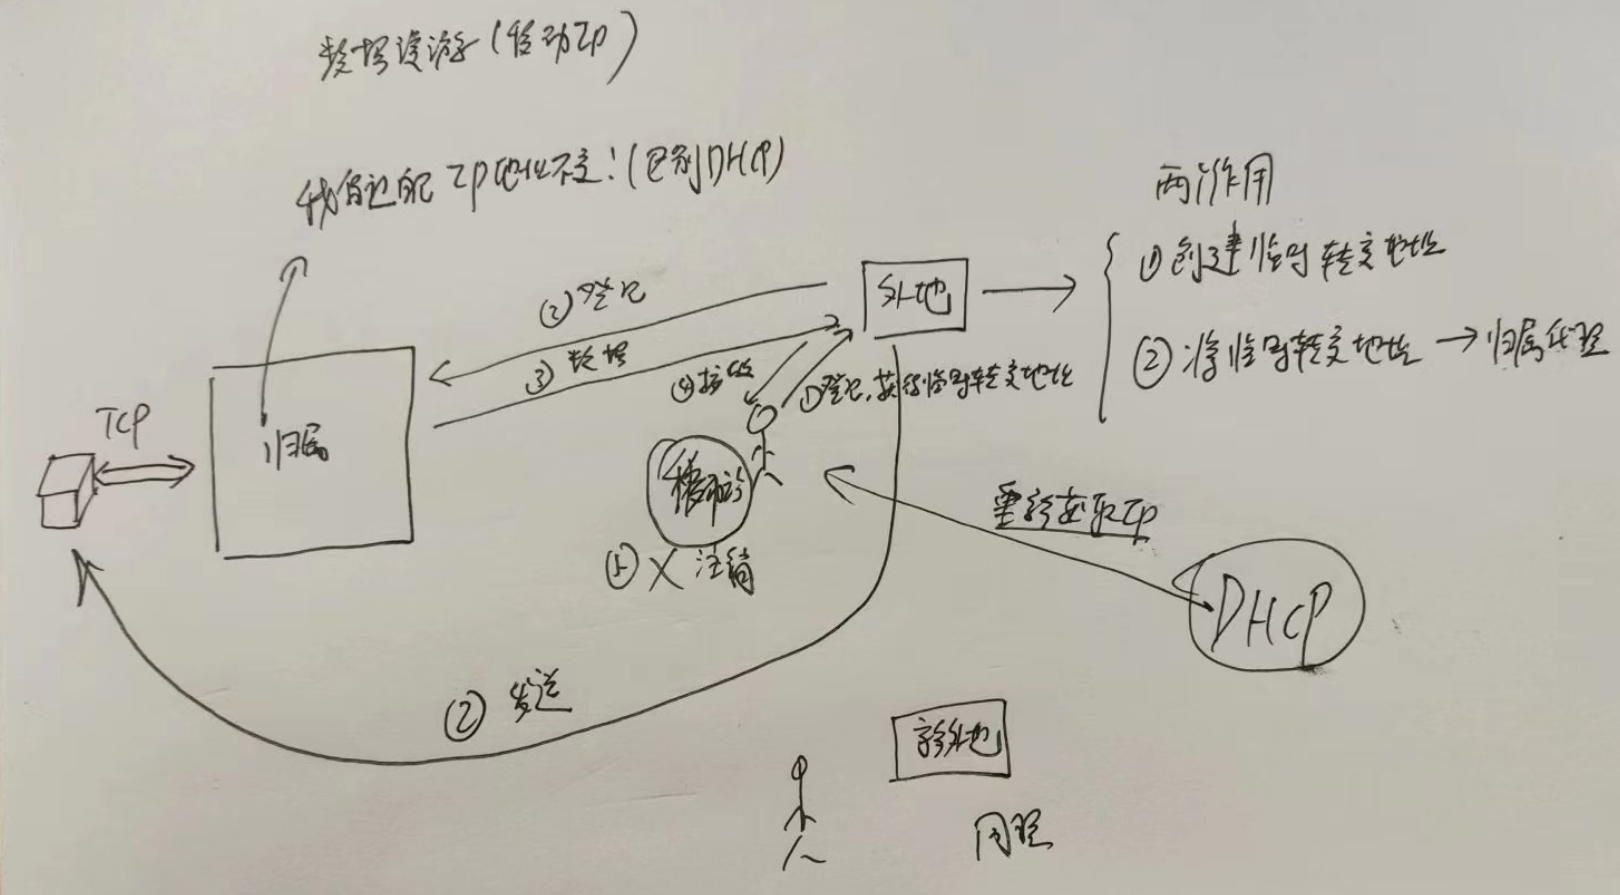 数据漫游(移动IP)
我自己的IP地址不变!(区别DHCP)
两个作用
①创建临时转交地址
②将临时转交地址→归属代理
外地
②登记
③数据
④接收
①登记,获得临时转交地址
TCP
归属
移动站
⑤X 注销
重新获取IP
DHCP
②发送
新外地
同理